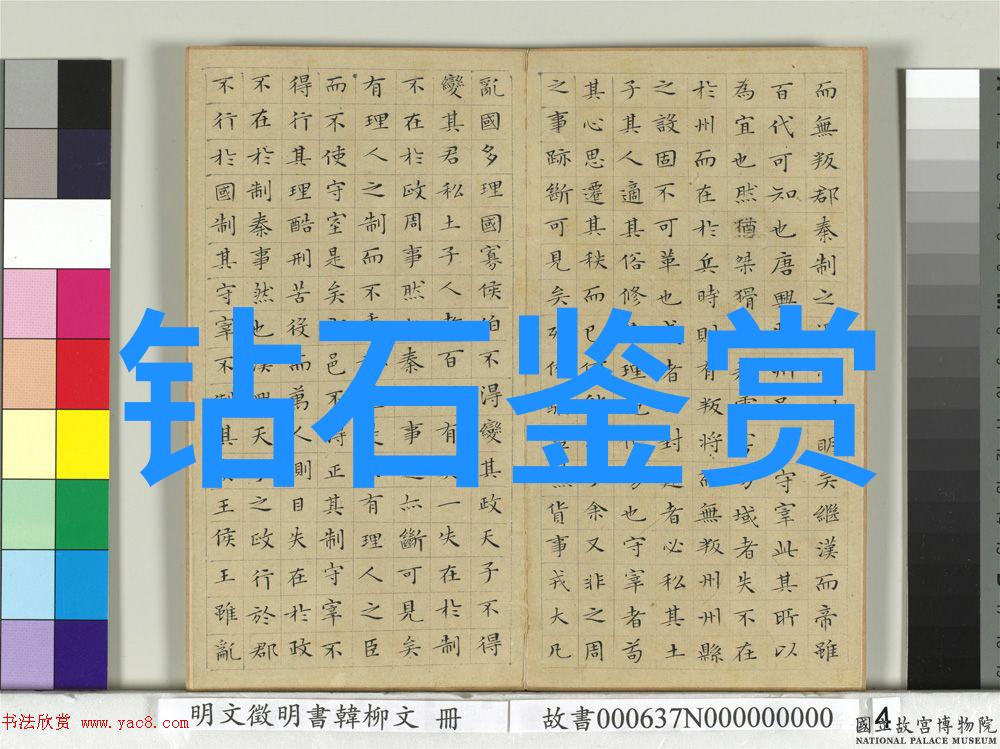 钻石鉴赏
而無叛郡秦制之明矣繼漢而帝雖
百代可知也唐興守宰此其所以
為宜也然猶桀猾域者失不在
於州而在於兵時則有叛將無叛州州縣
之設固不可革也或者封建者必私其土
子其人適其俗修理也守宰者苟
其心思遷其秩而已余又非之周
之事跡斷可見矣列侯驕貨事戎大凡
亂國多理國寡侯伯不得變其政天子不得
變其君私土子人者百有一失在於制
不在於政周事然秦事亦斷可見矣
有理人之制而不有理人之臣
而不使守宰是矣邑不得正其制守宰不
得行其理酷刑苦役而萬人側目失在於政
不在於制秦事然也漢興天子之政行於郡
不行於國制其守宰不制其王侯王雖亂
明文徵明書韓柳文 冊
故書000637N000000000
4
書法欣赏 www.yac8.com
國立故宮博物院
NATIONAL PALACE MUSEUM